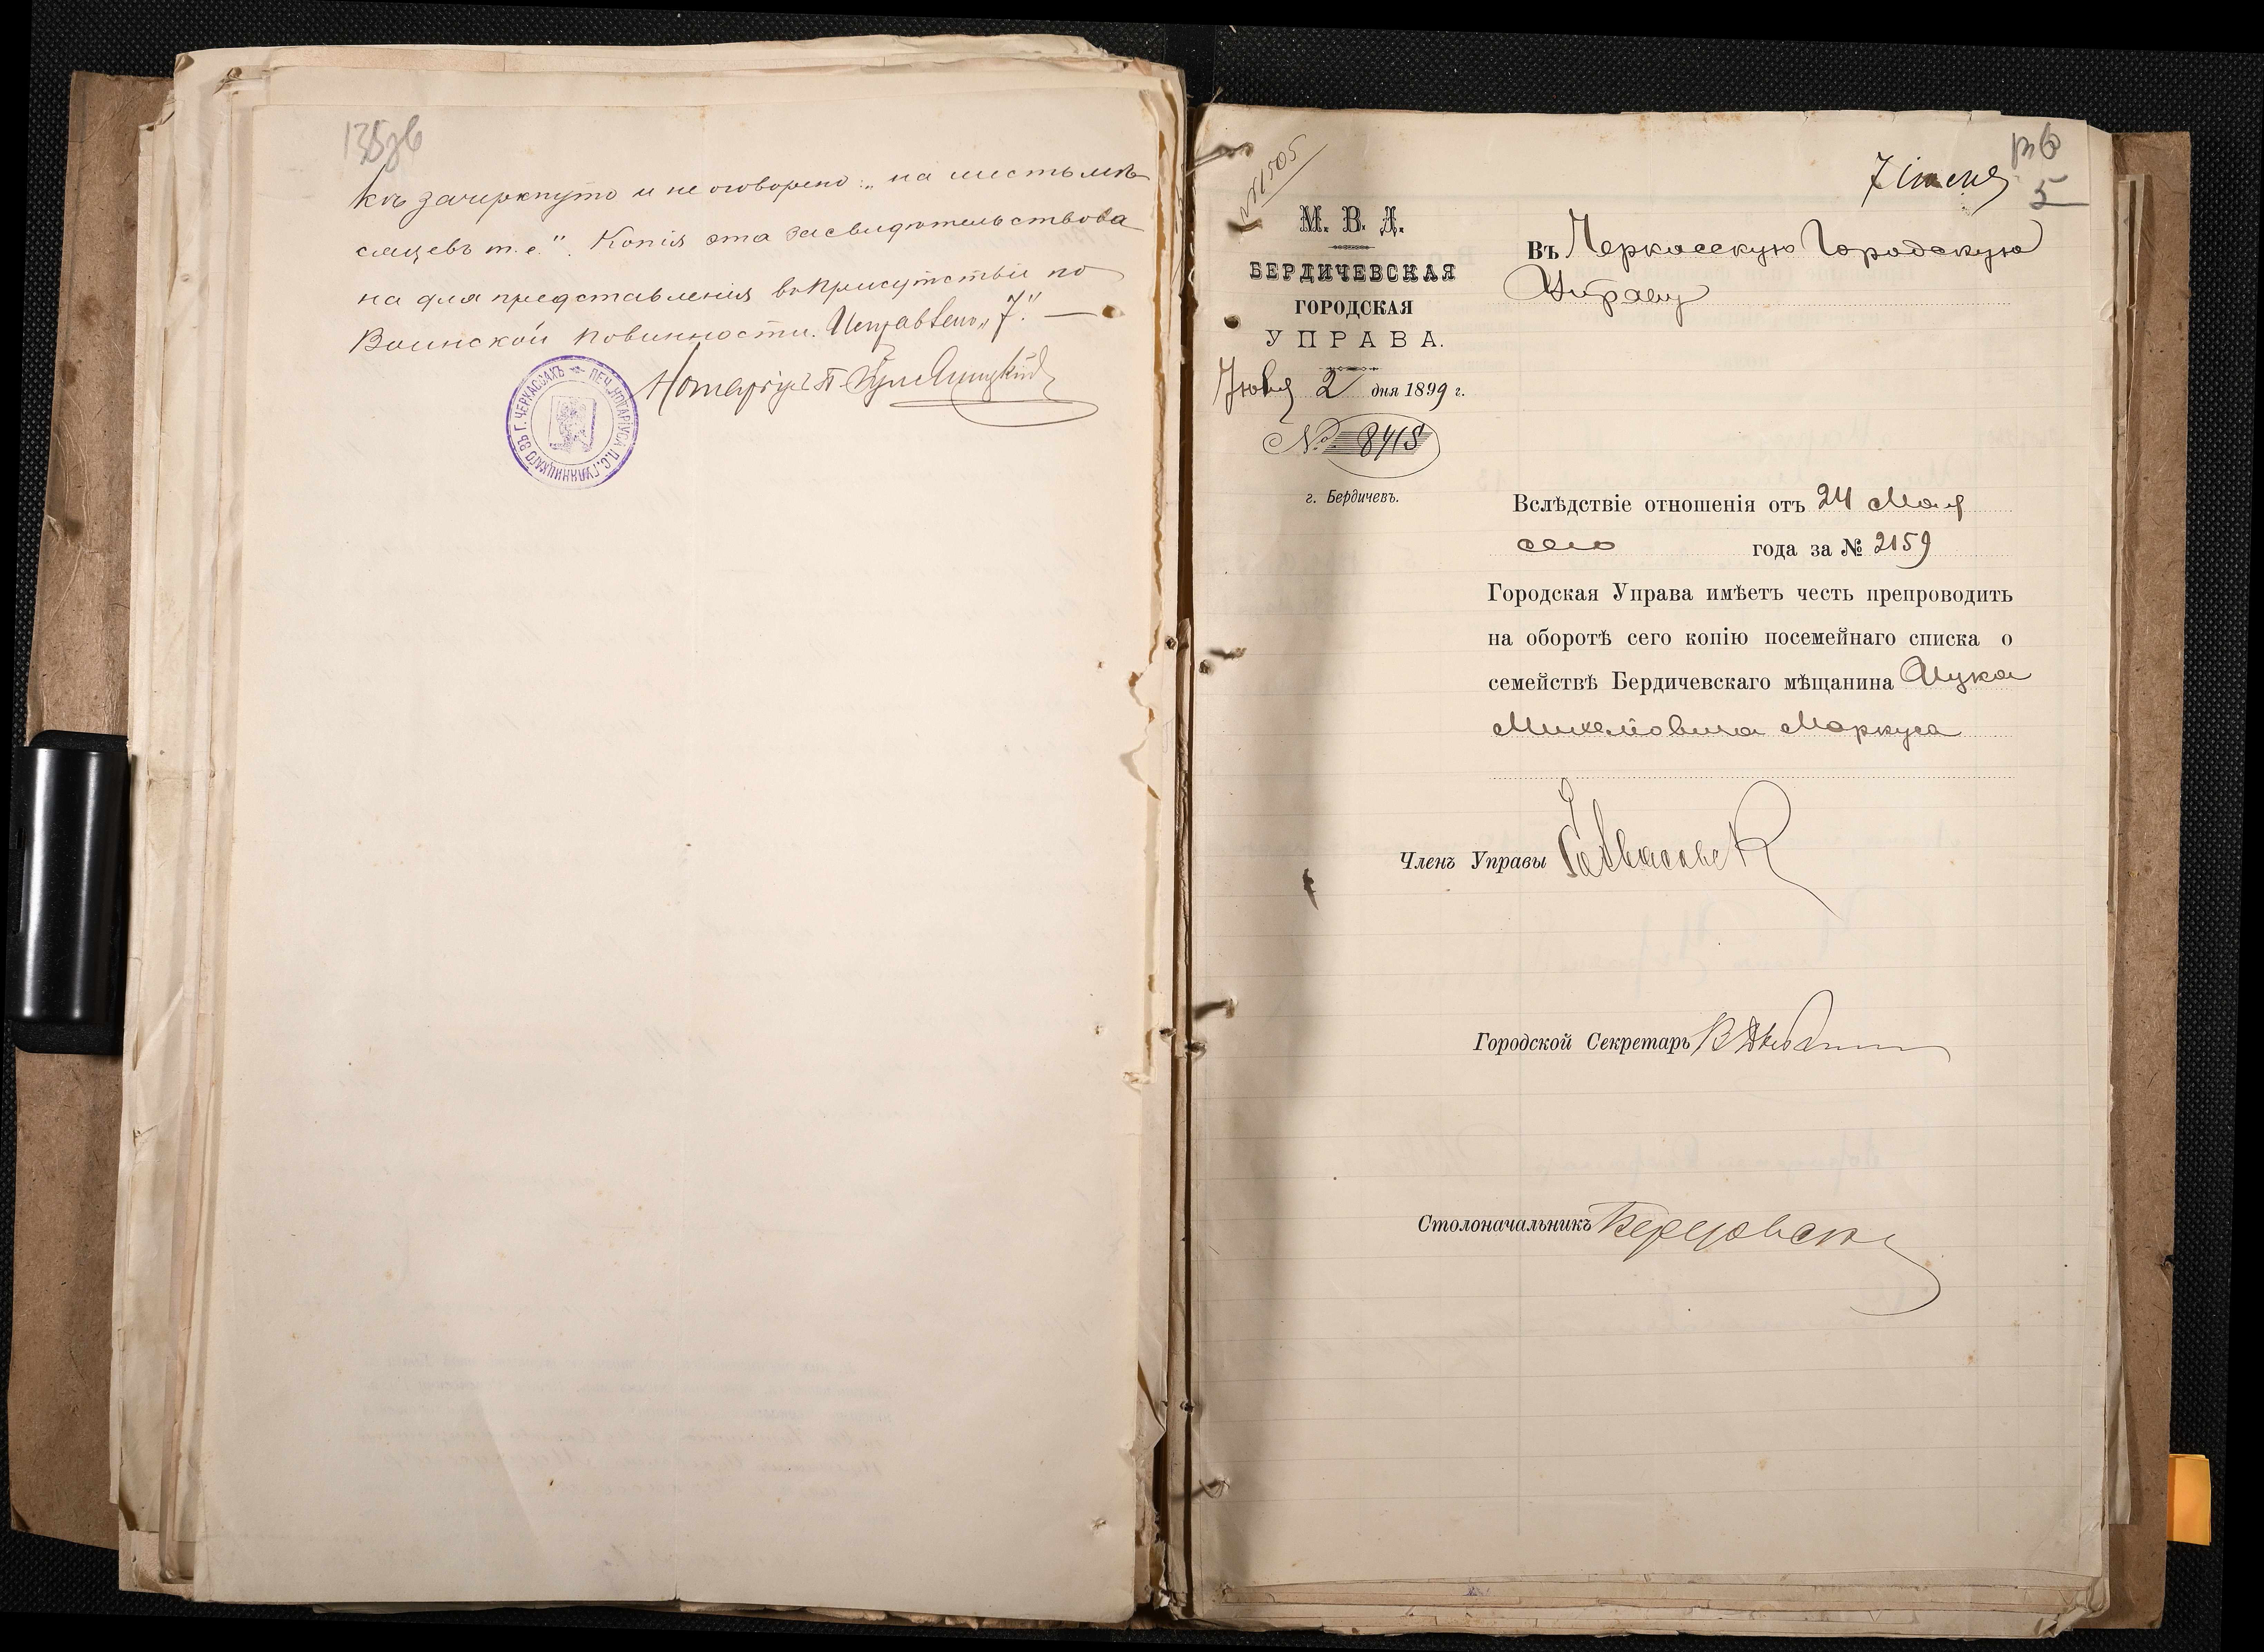 135об
къ зачеркнуто и не оговорено: „на шесть мѣ
сяцевъ т. е.". Копія эта засвидѣтельствова
на для представленія въ Присутствіе по
Воинской повинности. Исправлено „7". —
Нотаріусъ П. Гуляницкій
ПЕЧ. НОТАРІУСА П.С. ГУЛЯНИЦКАГО ВЪ Г. ЧЕРКАССАХЪ
136
7 іюня
5
М. В. Д.
БЕРДИЧЕВСКАЯ
ГОРОДСКАЯ
УПРАВА.
Іюня 2 дня 1899 г.
№ 8418
г. Бердичевъ.
Въ Черкасскую Городскую
Управу
Вслѣдствіе отношенія отъ 24 Мая
сего года за № 2159
Городская Управа имѣетъ честь препроводить
на оборотѣ сего копію посемейнаго списка о
семействѣ Бердичевскаго мѣщанина Ицка
Михелiовича Маркуса
Членъ Управы
Городской Секретарь
Столоначальникъ